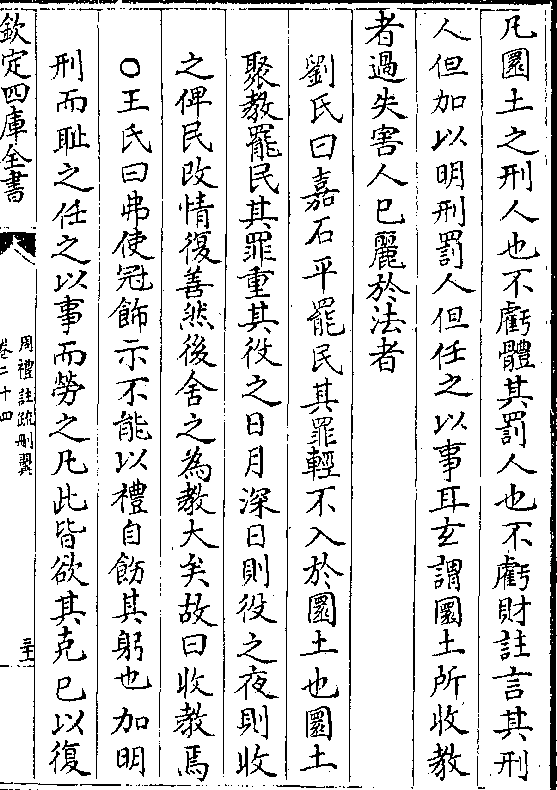 凡圜土之刑人也不虧體其罰人也不虧財註言其刑
人但加以明刑罰人但任之以事耳玄謂圜土所收教
者過失害人已麗於法者
劉氏曰嘉石平罷民其罪輕不入於圜土也圜土
聚教罷民其罪重其役之日月深日則役之夜則收
之俾民改情復善然後舍之為教大矣故曰收教焉
○王氏曰弗使冠飾示不能以禮自飭其躬也加明
刑而耻之任之以事而勞之凡此皆欲其克已以復
欽定四庫全書
周禮註疏刪翼
卷二十四